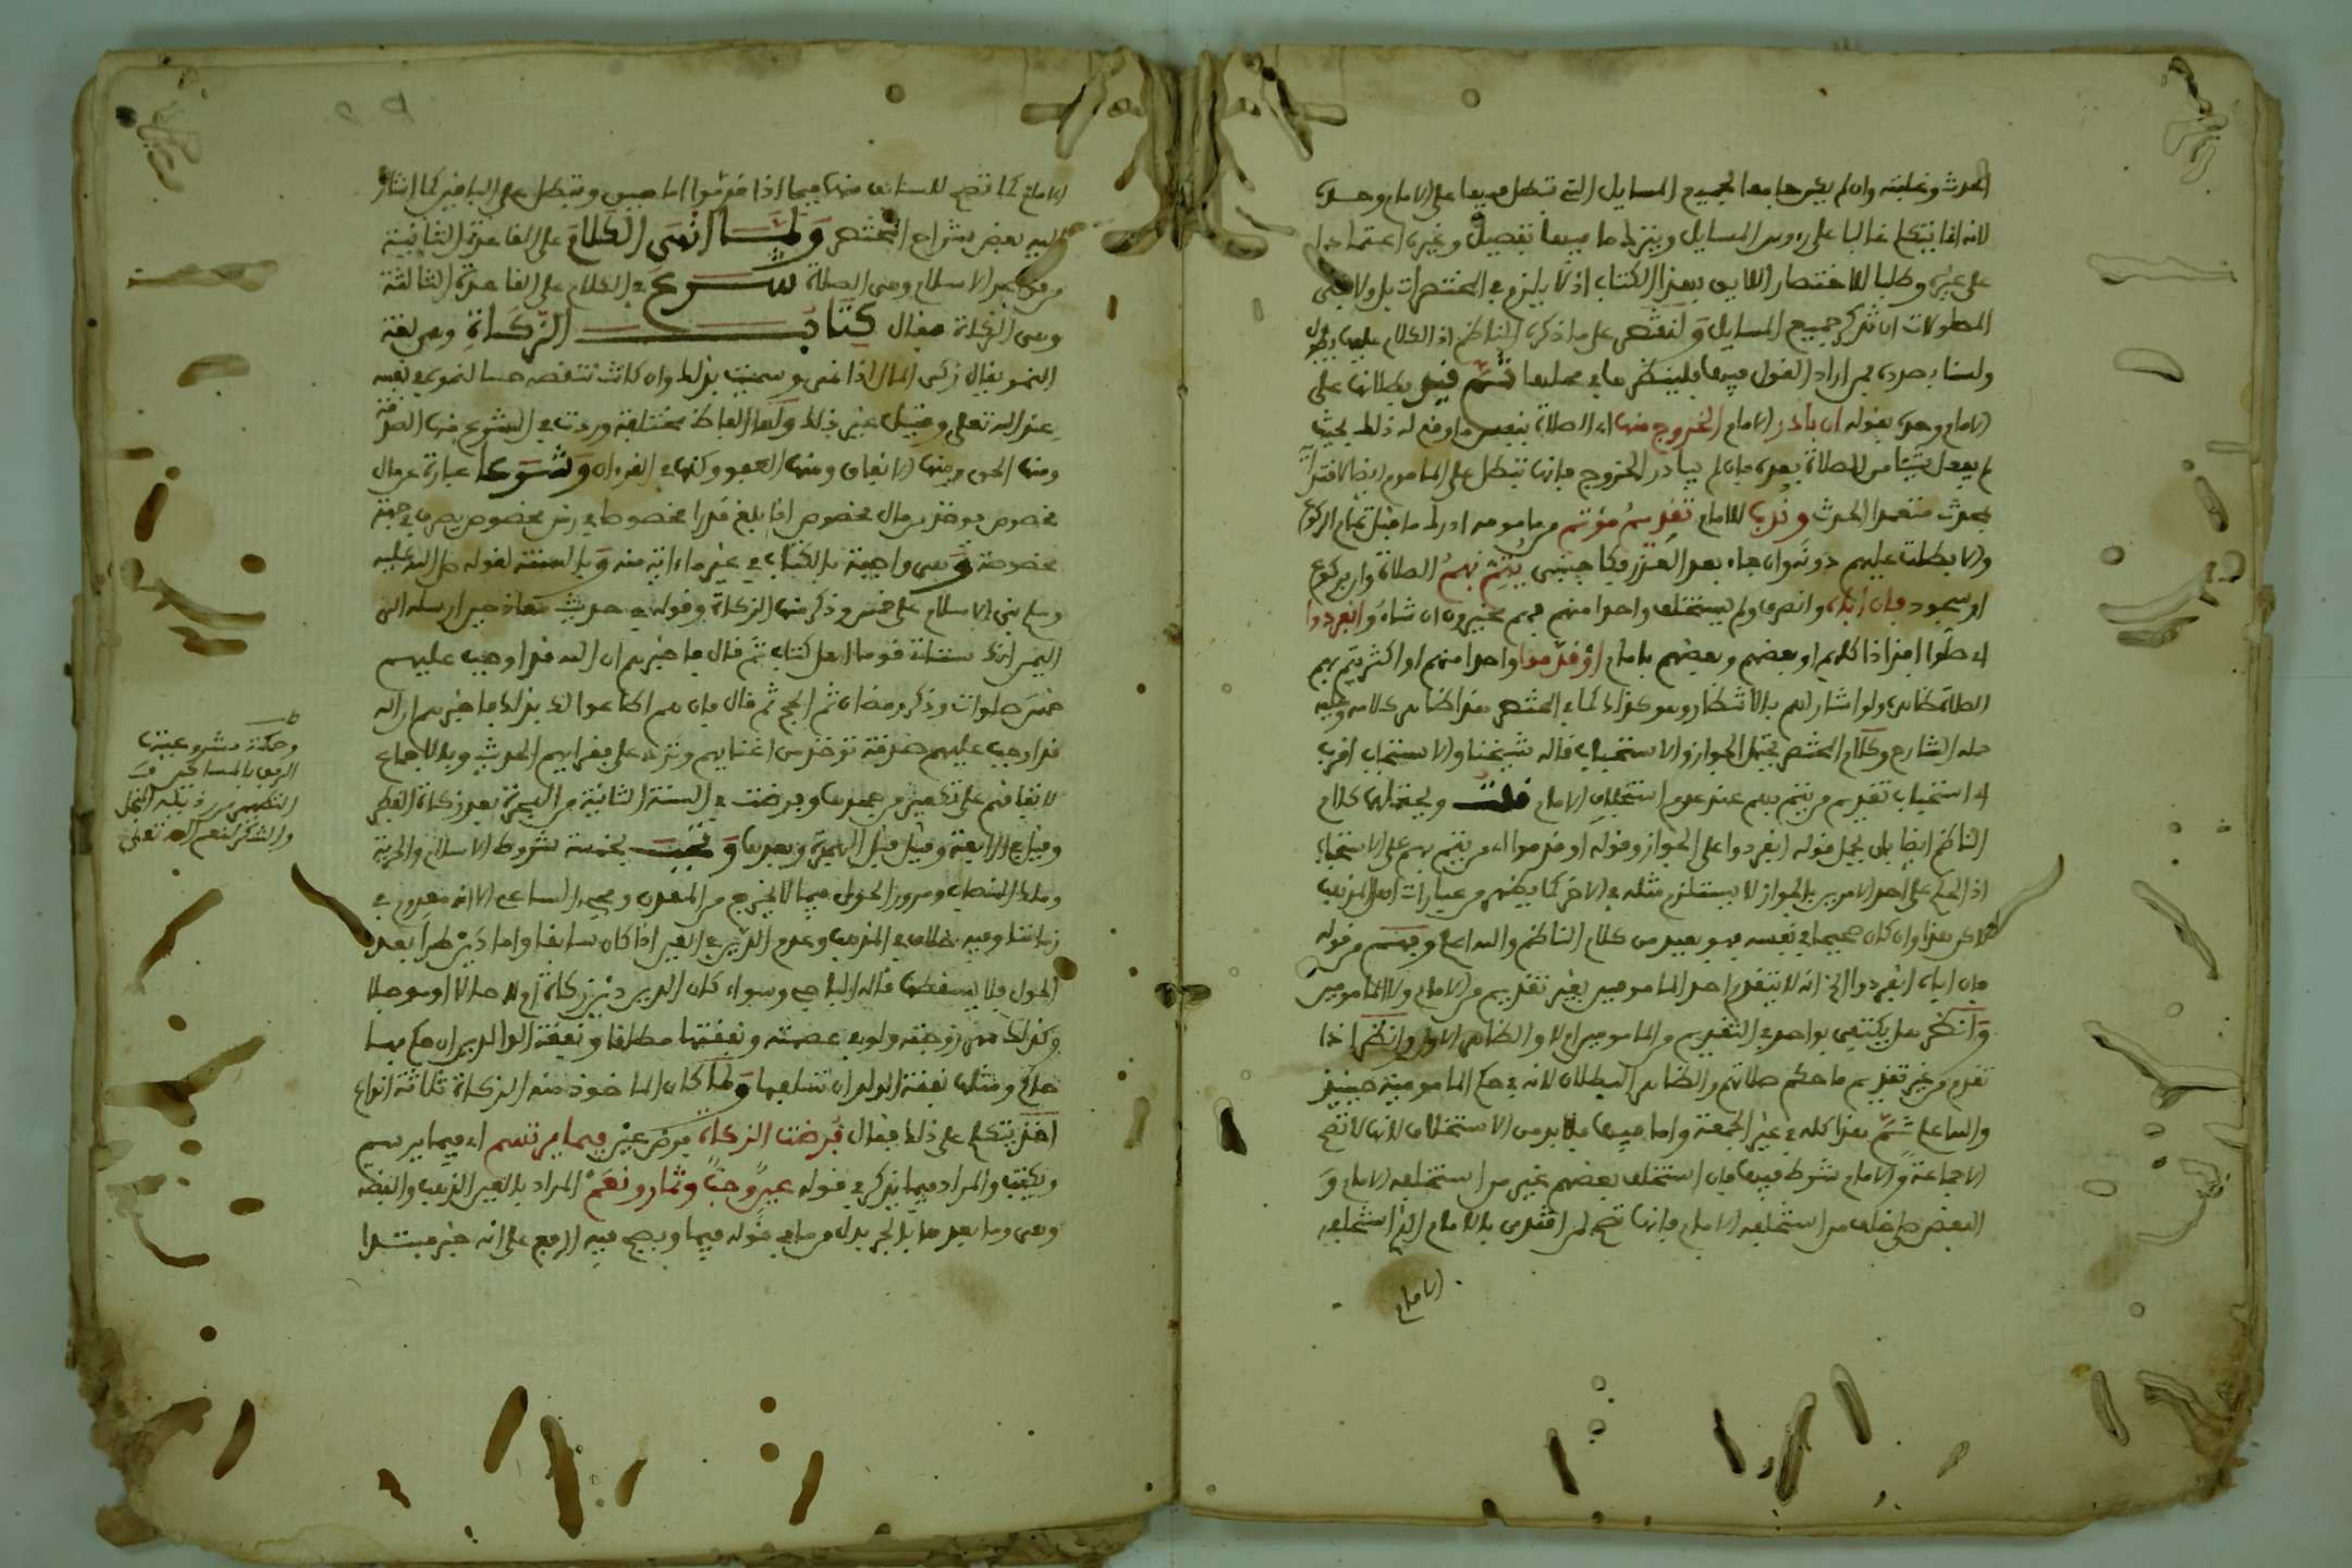 الحدث وغلبته وان لم يكن جامعا لجميع المسايل التي تبطل فيها على الامام وحده
لانه انما يتكلم غالبا على رءوس المسايل ويترك ما فيها تفصيل وغيره اعتمادا
على غيره وطلبا للاختصار اللايق بهذا الكتاب اذ لا يلزم في المختصرات بل ولا في
المطولات ان تذكر جميع المسايل ولنقتصر على ما ذكره الناظم اذ الكلام عليها يطول
ولسنا بصدده فمن اراد القول فيها فلينظرها في محلها ثم قيد بطلانها على
الامام وحده بقوله ان بادر الامام الخروج منها اي الصلاة بنفس ما وقع له ذلك بحيث
لم يفعل شيئا من الصلاة بعده فان لم يبادر الخروج فانها تبطل على المأموم ايضا لاقتدائه
بمحدث متعمدا لحدث وندبا للامام تقديم مؤتم من مامومه ادرك ما قبل تمام الركوع
والا بطلت عليهم دونه وان جاء بعد العذر فكاجنبي يتم بهم الصلاة وان بركوع
او سجود فان اباه وانصرف ولم يستخلف واحدا منهم فهم مخيرون ان شاءوا انفردوا
اي صلوا افذاذا كلهم او بعضهم وبعضهم بامام او قدموا واحدا منهم او اكثر يتم بهم
الصلاة ولو اشار لهم بالانتظار وهو كذلك كما في المختصر هذا ظاهر كلامه وعليه
حمله الشارح وكلام المختصر يحتمل الجواز والاستحباب قاله شيخنا والاستحباب اقرب
اي استحباب تقديم من يتم بهم عند عدم استخلاف الامام قلت ويحتملها كلام
الناظم ايضا بان يحمل قوله انفردوا على الجواز وقوله او قدموا اي من يتم بهم على الاستحباب
اذ الحكم على احد الامرين بالجواز لا يستلزم مثله في الاخر كما يظهر من عبارات اهل المذهب
لاكن هذا وان كان صحيحا في نفسه فهو بعيد من كلام الناظم والله اعلم وفهم من قوله
فان اباه انفردوا الخ انه لا يتقدم احد المامومين بغير تقديم من الامام ولا المامومين
وانظر هل يكتفى بواحد في التقديم من المامومين ام لا والظاهر الاول وانظر اذا
تقدم من غير تقديم ما حكم صلاتهم والظاهر البطلان لانه في حكم المامومية حينئذ
والله اعلم ثم هذا كله في غير الجمعة واما فيها فلا بد من الاستخلاف لانها لا تصح
الا جماعة والامام شرط فيها فان استخلف بعضهم غير من استخلفه الامام و
البعض صلى خلف من استخلفه الامام فانها تصح لمن اقتدى بالامام الذي استخلفه
الامام
الامام كما تصح للسابق منها فيما اذا قدموا امامين وتبطل على الباقين كما اشار
اليه بعض شراح المختصر ولما انهى الكلام على القاعدة الثانية
من قواعد الاسلام وهي الصلاة شرع في الكلام على القاعدة الثالثة
وهي الزكاة فقال كتاب الزكاة وهي لغة
النمو يقال زكى المال اذا نمى وسميت بذلك وان كانت تنقصه حسا لنموه في نفسه
عند الله تعلى وقيل غير ذلك ولها الفاظ مختلفة وردت في الشرع منها الصدقة
ومنها الحق ومنها الانفاق ومنها العفو وكلها في القرءان وشرعا عبارة عن مال
مخصوص يوخذ من مال مخصوص اذا بلغ قدرا مخصوصا في زمن مخصوص يصرف في جهة
مخصوصة وهي واجبة بالكتاب في غير ما ءاية منه وبالسنة لقوله صلى الله عليه
وسلم بني الاسلام على خمس وذكر منها الزكاة وقوله في حديث معاذ حين ارسله الى
اليمن انك ستاتي قوما اهل كتاب ثم قال فاخبرهم ان الله قد اوجب عليهم
خمس صلوات وذكر رمضان ثم الحج ثم قال فان هم اطاعوا لك بذلك فاخبرهم ان الله
قد اوجب عليهم صدقة توخذ من اغنيايهم وترد على فقرايهم الحديث وبالاجماع
لاتفاقهم على تكفير من جحدها وفرضت في السنة الثانية من الهجرة بعد زكاة الفطر
وقيل في الرابعة وقيل قبل الهجرة وبعدها وتجب بخمسة شروط الاسلام والحرية
وملك النصاب ومرور الحول فيما لا يخرج من المعدن ومجيء الساعي الا انه معدوم في
زماننا وفيه خلاف في المذهب وعدم الدين في العين اذا كان سابقا واما دين طرا بعد
الحول فلا يسقطها قاله الباجي وسواء كان الدين دين زكاة ام لا حالا او موجلا
وكذلك مهر زوجته ولو في عصمته ونفقتها مطلقا ونفقة الوالدين ان حكم بهما
حاكم ومثلها نفقة الولد ان تسلفها ولما كان الماخوذ منه الزكاة ثلاثة انواع
اخذ يتكلم على ذلك فقال فرضت الزكاة فرض عين فيما يرتسم اي فيما يرسم
ويكتب والمراد فيما يذكر في قوله عين وحب وثمار ونعم المراد بالعين الذهب والفضة
وهي وما بعدها بالجر بدل من ما في قوله فيما ويصح فيه الرفع على انه خبر مبتدا
وحكمة مشروعيتها
الرفق بالمساكين
التطهير من رذيلة البخل
والشكر لنعم الله تعلى